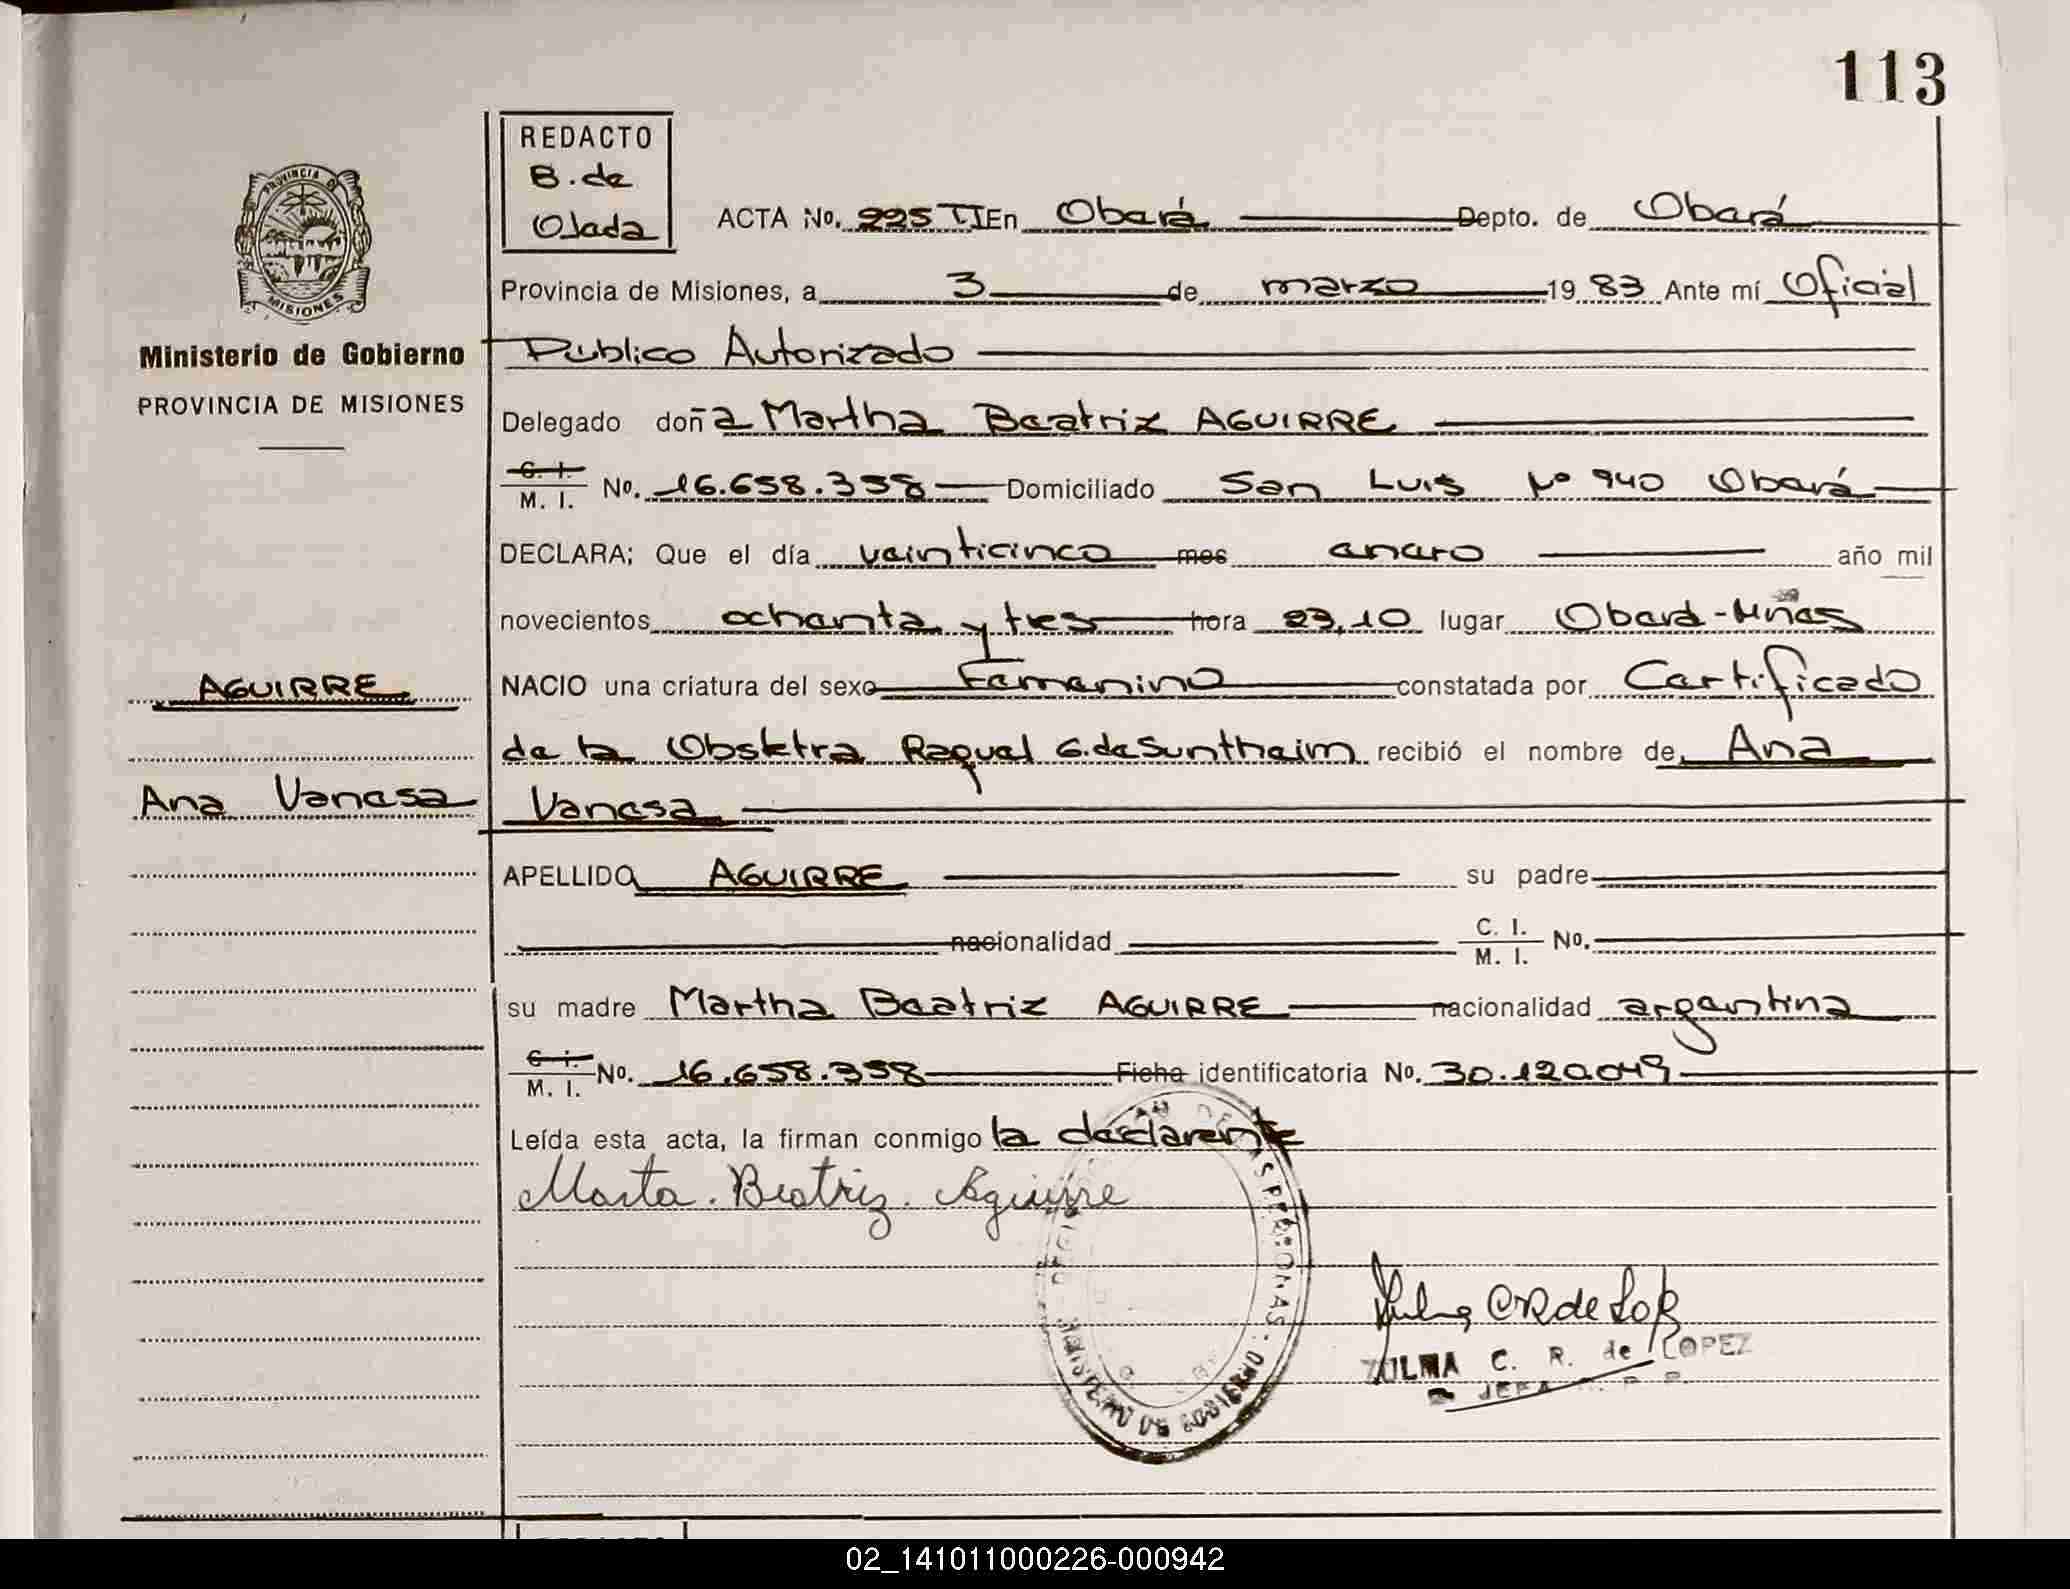 113
REDACTO
B. de
Ojeda
PROVINCIA DE
MISIONES
Ministerio de Gobierno
PROVINCIA DE MISIONES
ACTA No. 225 TI En Oberá Depto. de Oberá
Provincia de Misiones, a 3 de marzo 19 83 Ante mí Oficial
Público Autorizado
Delegado doña Martha Beatriz AGUIRRE
C. I.
M. I. No. 16.658.358 Domiciliado San Luis No 940 Oberá
DECLARA; Que el día veinticinco mes enero año mil
novecientos ochenta y tres hora 23,10 lugar Oberá-Mnes
AGUIRRE
NACIO una criatura del sexo Femenino constatada por Certificado
de la Obstetra Raquel G. de Suntheim recibió el nombre de Ana
Ana Vanesa
Vanesa
APELLIDO AGUIRRE su padre
nacionalidad C. I.
M. I. No.
su madre Martha Beatriz AGUIRRE nacionalidad argentina
C. I.
M. I. No. 16.658.358 Ficha identificatoria No. 30.120.049
Leída esta acta, la firman conmigo la declarante
Marta. Beatriz. Aguirre
DE LAS PERSONAS
MINISTERIO DE GOBIERNO
ZULMA C. R. de LOPEZ
JEFA
02_141011000226-000942